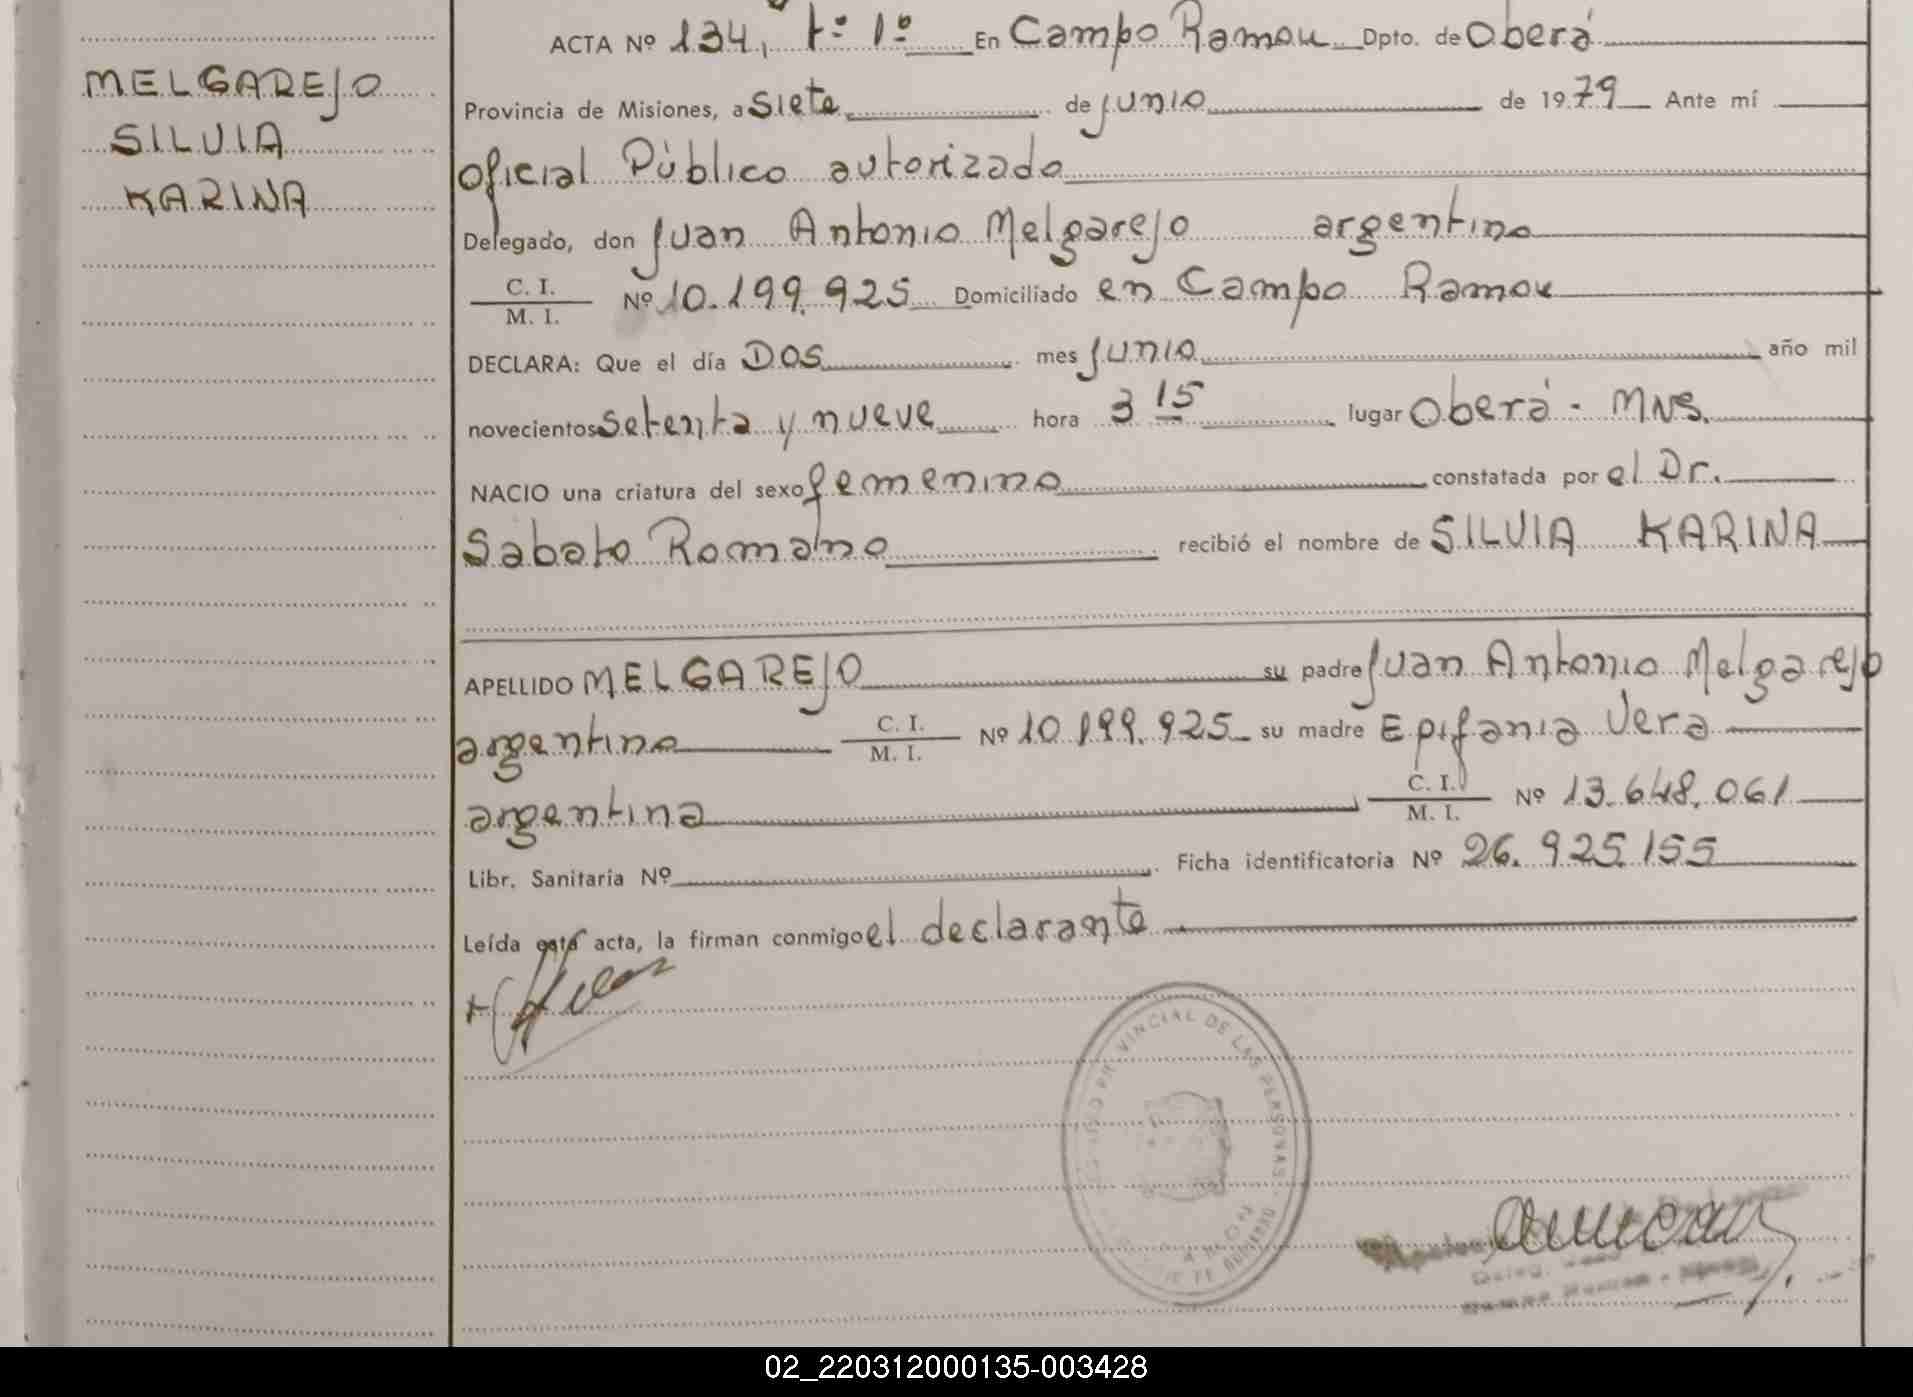 MELGAREJO
SILVIA
KARINA
ACTA Nº 134, tº 1º En Campo Ramon Dpto. de Oberá
Provincia de Misiones, a siete de junio de 1979 Ante mí
oficial Público autorizado
Delegado, don Juan Antonio Melgarejo argentino
C. I.
M. I. Nº 10.199.925 Domiciliado en Campo Ramon
DECLARA: Que el día DOS mes junio año mil
novecientos setenta y nueve hora 3 15 lugar Oberá - MNS.
NACIO una criatura del sexo femenino constatada por el Dr.
Sabato Romano recibió el nombre de SILVIA KARINA
APELLIDO MELGAREJO su padre Juan Antonio Melgarejo
argentino C. I.
M. I. Nº 10.199.925 su madre Epifania Vera
argentina C. I.
M. I. Nº 13.648.061
Libr. Sanitaria Nº Ficha identificatoria Nº 26.925.155
Leída está acta, la firman conmigo el declarante
PROVINCIAL DE LAS PERSONAS
02_220312000135-003428